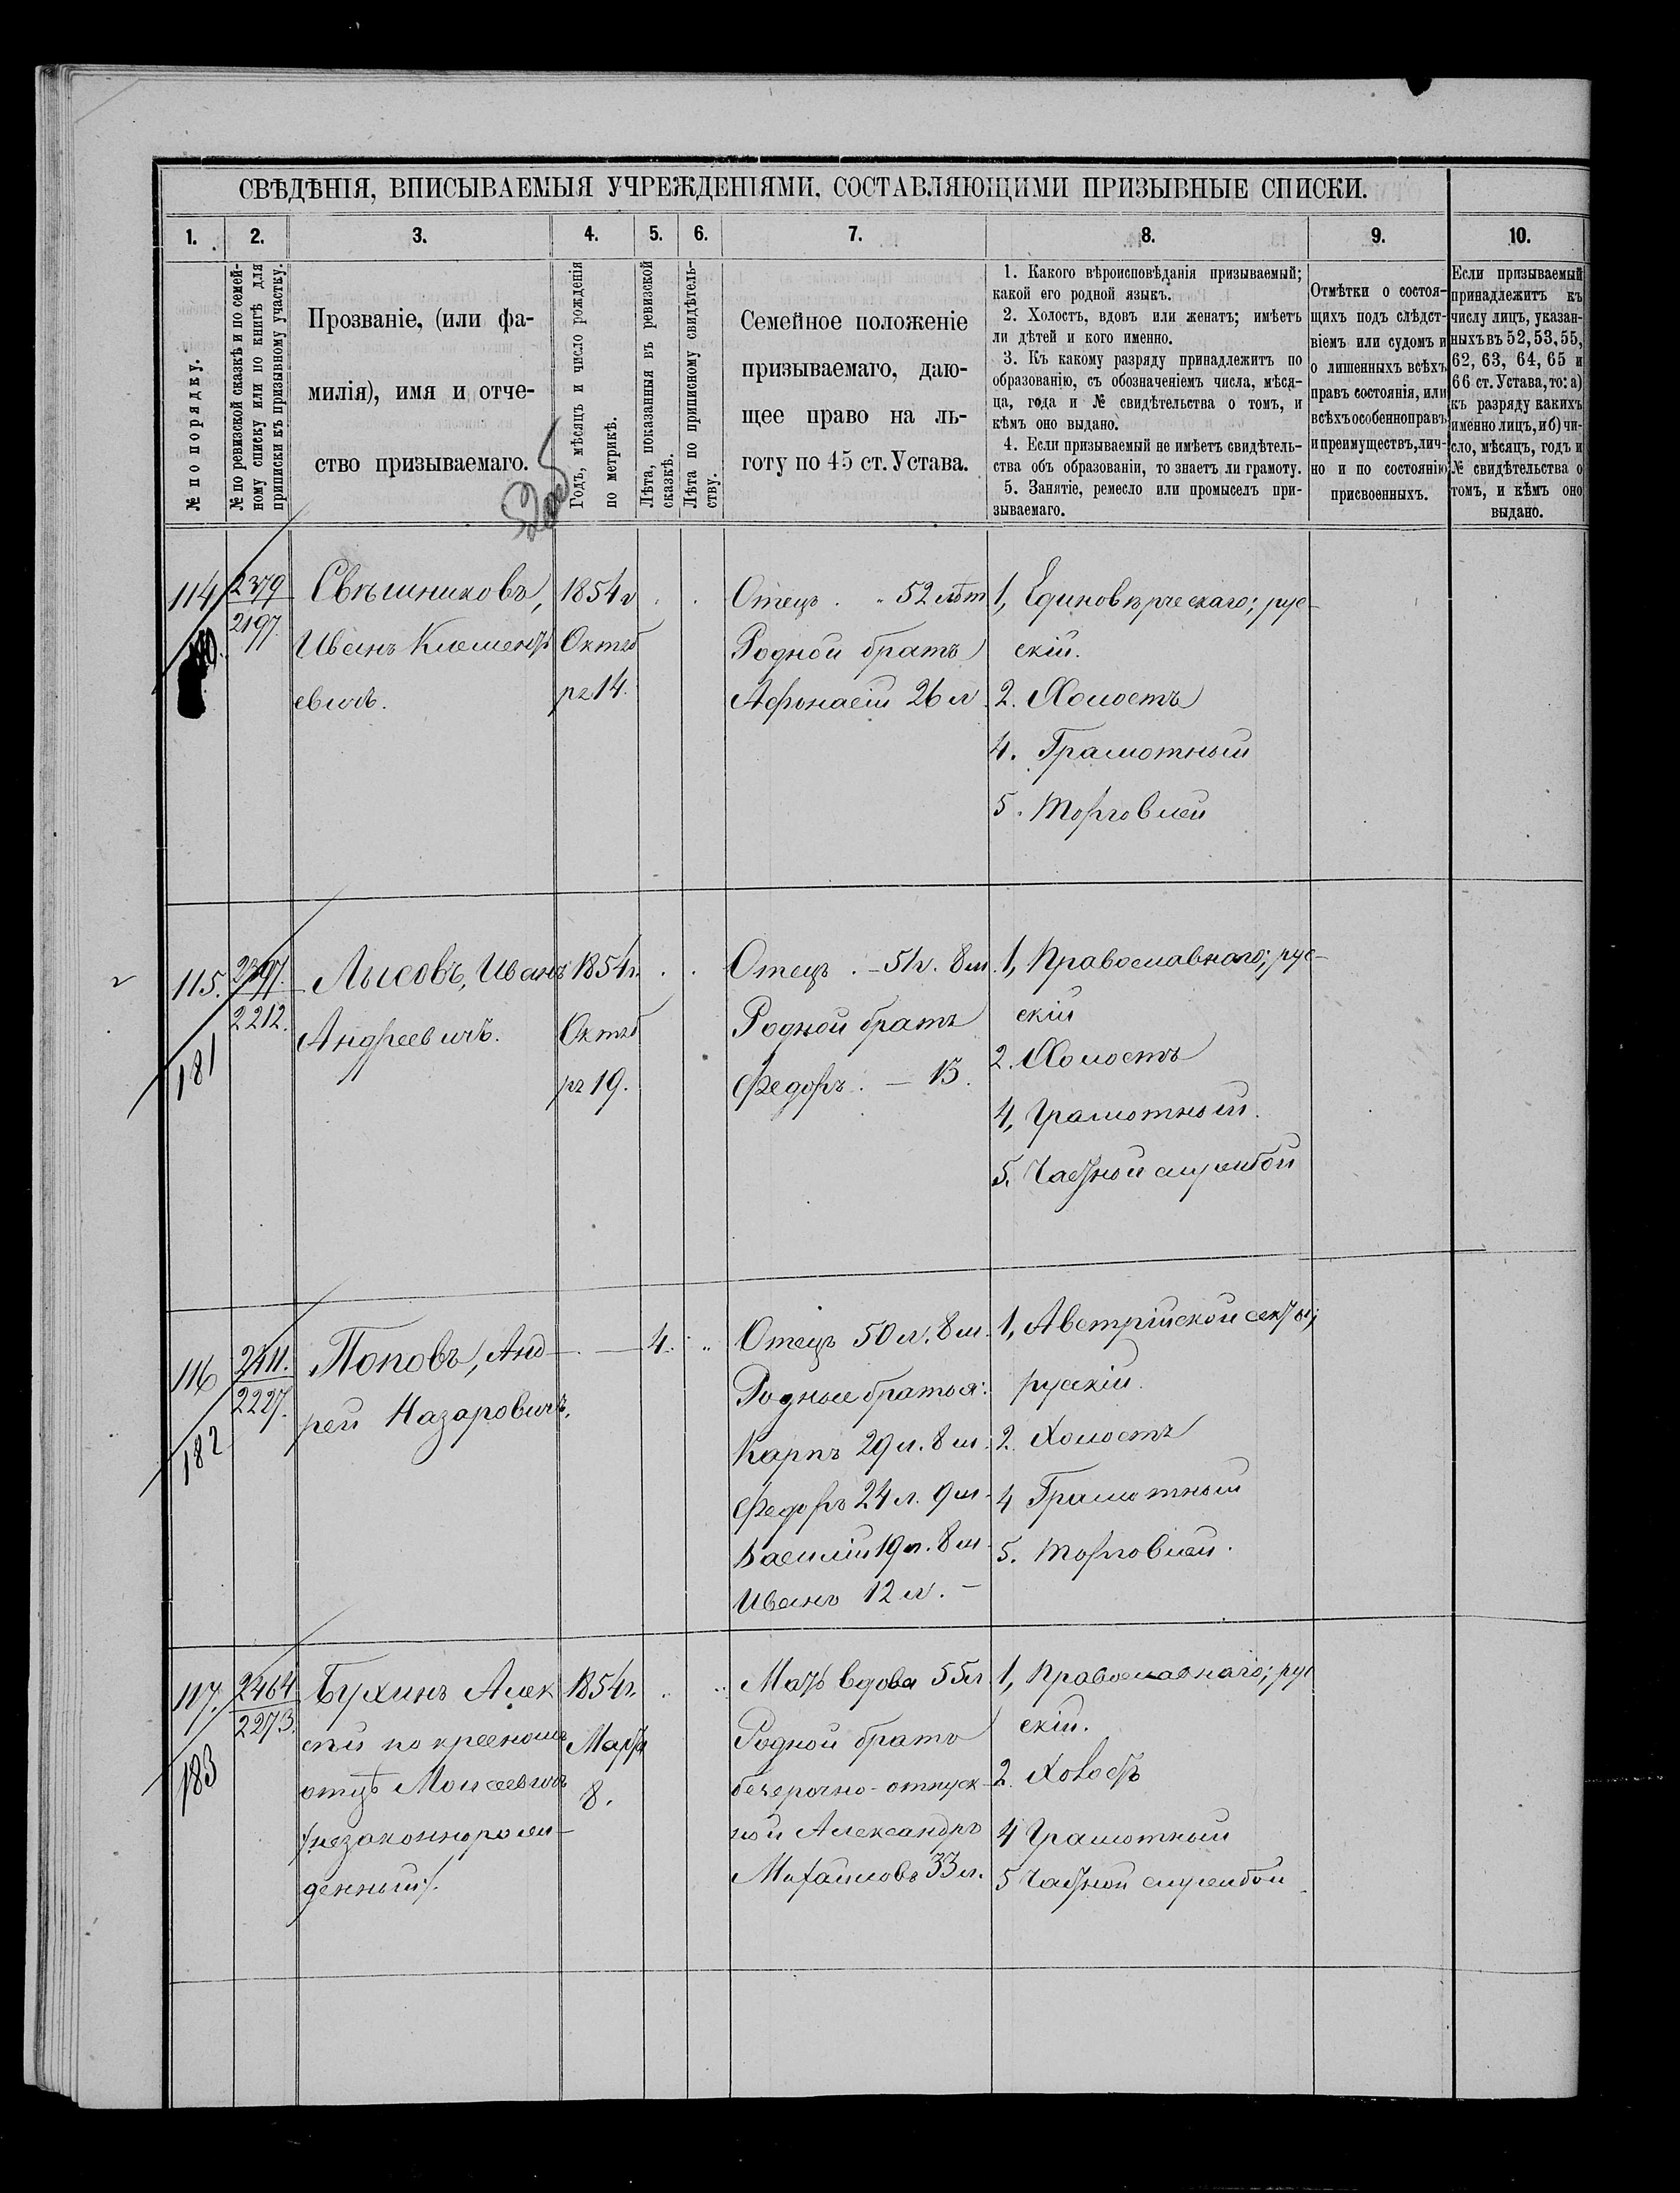 СВѢДѢНІЯ, ВПИСЫВАЕМЫЯ УЧРЕЖДЕНІЯМИ, СОСТАВЛЯЮЩИМИ ПРИЗЫВНЫЕ СПИСКИ.
1. 2. 3. 4. 5. 6. 7. 8. 9. 10.
№ по порядку.
№ по ревизской сказкѣ и по семей-
ному списку или по книгѣ для
приписки къ призывному участку.
Прозваніе, (или фа-
милія), имя и отче-
ство призываемаго.
Годъ, мѣсяцъ и число рожденія
по метрикѣ.
Лѣта, показанныя въ ревизской
сказкѣ.
Лѣта по приписному свидѣтель-
ству.
Семейное положеніе
призываемаго, даю-
щее право на ль-
готу по 45 ст. Устава.
1. Какого вѣроисповѣданія призываемый;
какой его родной языкъ.
2. Холостъ, вдовъ или женатъ; имѣетъ
ли дѣтей и кого именно.
3. Къ какому разряду принадлежитъ по
образованію, съ обозначеніемъ числа, мѣся-
ца, года и № свидѣтельства о томъ, и
кѣмъ оно выдано.
4. Если призываемый не имѣетъ свидѣтель-
ства объ образованіи, то знаетъ ли грамоту.
5. Занятіе, ремесло или промыселъ при-
зываемаго.
Отмѣтки о состоя-
щихъ подъ слѣдст-
віемъ или судомъ и
о лишенныхъ всѣхъ
правъ состоянія, или
всѣхъ особенно правъ
и преимуществъ, лич-
но и по состоянію
присвоенныхъ.
Если призываемый
принадлежитъ къ
числу лицъ, указан-
ныхъ въ 52, 53, 55,
62, 63, 64, 65 и
66 ст. Устава, то: а)
къ разряду какихъ
именно лицъ, и б) чи-
сло, мѣсяцъ, годъ и
№ свидѣтельства о
томъ, и кѣмъ оно
выдано.
114
2379
2197.
Свѣшниковъ,
Иванъ Клементь
евичъ.
1854 г
Октяб
ря 14.
Отецъ . „ 52 лѣт
Родной братъ
Афонасій 26 л
1, Единовѣрческаго; рус-
скій.
2. Холостъ
4. Грамотный
5. Торговлей
115.
181
2397.
2212.
Лысовъ, Иванъ
Андреевичъ.
1854 г.
Октяб
ря 19.
Отецъ . – 51 г. 8 м.
Родной братъ
Федоръ . – 13.
1, Православнаго; рус-
скій
2. Холостъ
4, Грамотный.
5. Частной службой
116
182
2411.
2227.
Поповъ, Анд-
рей Назаровичъ.
4.
Отецъ 50 л. 8 м.
Родные братья:
Карпъ 29 л. 8 м.
Федоръ 24 л. 9 м.
Василій 19 л. 8 м.
Иванъ 12 л. –
1, Австрійской секты;
русскій.
2. Холостъ
4 Грамотный
5. Торговлей.
117.
183
2464
2273.
Бухинъ Алек
сѣй по крестному
отцѣ Моисеевичъ
/незаконнорож-
денный/.
1854 г.
Марта
8.
Мать вдова 55 л
Родной братъ
безсрочно-отпуск-
ной Александръ
Михайловъ 33 л.
1, Православнаго; рус
скій.
2. Холостъ
4 Грамотный
5 Частной службой